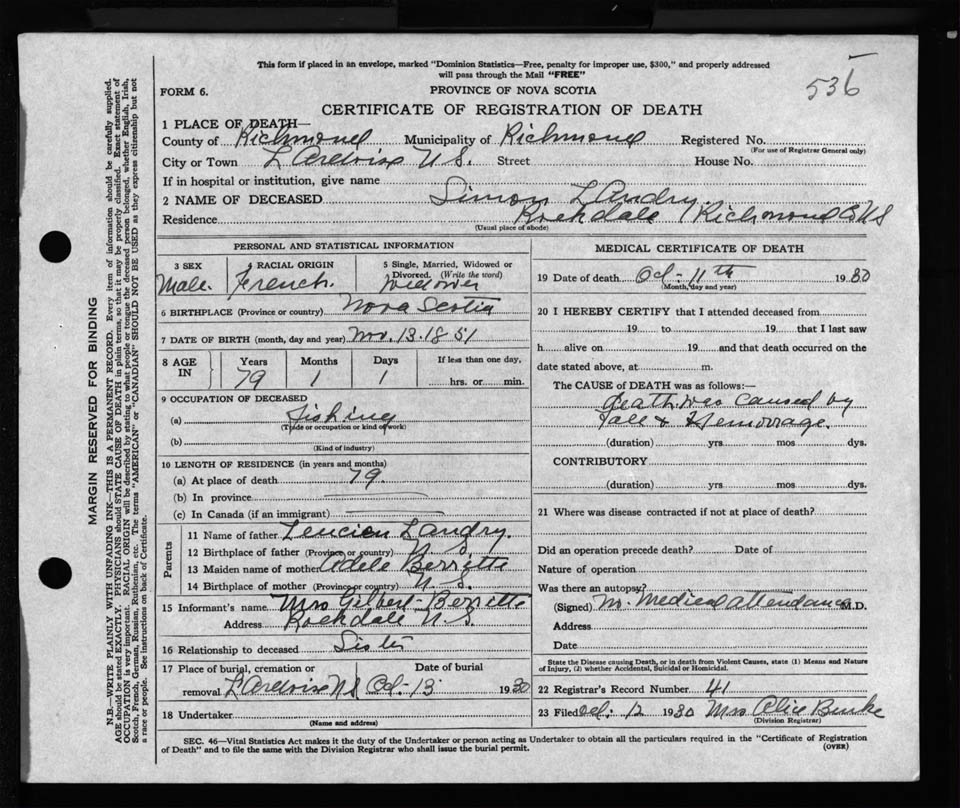 This form if placed in an envelope, marked "Dominion Statistics—Free, penalty for improper use, $300," and properly addressed
will pass through the Mail "FREE"
536
FORM 6.
PROVINCE OF NOVA SCOTIA
CERTIFICATE OF REGISTRATION OF DEATH
1 PLACE OF DEATH—
County of Richmond Municipality of Richmond Registered No.
(For use of Registrar General only)
City or Town L'Ardoise N S. Street House No.
If in hospital or institution, give name
2 NAME OF DECEASED Simon LAndry.
Residence Rockdale Richmond Co NS
(Usual place of abode)
PERSONAL AND STATISTICAL INFORMATION
3 SEX Male.
4 RACIAL ORIGIN French.
5 Single, Married, Widowed or Divorced. (Write the word) widower
6 BIRTHPLACE (Province or country) Nova Scotia
7 DATE OF BIRTH (month, day and year) Nov. 13. 1851
8 AGE IN Years 79 Months 1 Days 1 If less than one day, hrs. or min.
9 OCCUPATION OF DECEASED
(a) Fishing
(Trade or occupation or kind of work)
(b)
(Kind of industry)
10 LENGTH OF RESIDENCE (in years and months)
(a) At place of death 79.
(b) In province
(c) In Canada (if an immigrant)
Parents
11 Name of father Leucien Landry.
12 Birthplace of father (Province or country) N S.
13 Maiden name of mother Adele Berrette
14 Birthplace of mother (Province or country) N.S.
15 Informant's name Mrs Gilbert Berrette
Address Rockdale N.S.
16 Relationship to deceased Sister
17 Place of burial, cremation or removal L'Ardoise NS Date of burial Oct- 13 1930
18 Undertaker
(Name and address)
MEDICAL CERTIFICATE OF DEATH
19 Date of death Oct- 11th 1930
(Month, day and year)
20 I HEREBY CERTIFY that I attended deceased from
19 to 19 that I last saw
h alive on 19 and that death occurred on the
date stated above, at m.
The CAUSE OF DEATH was as follows:—
Death was caused by
Fall & Hemorrage.
(duration) yrs. mos dys.
CONTRIBUTORY
(duration) yrs. mos. dys.
21 Where was disease contracted if not at place of death?
Did an operation precede death? Date of
Nature of operation
Was there an autopsy?
(Signed) No Medical attendance M.D.
Address
Date
State the Disease causing Death, or in death from Violent Causes, state (1) Means and Nature
of Injury, (2) whether Accidental, Suicidal or Homicidal.
22 Registrar's Record Number 41
23 Filed Oct. 12 1930 Mrs Alice Burke
(Division Registrar)
SEC. 46—Vital Statistics Act makes it the duty of the Undertaker or person acting as Undertaker to obtain all the particulars required in the "Certificate of Registration
of Death" and to file the same with the Division Registrar who shall issue the burial permit.
(OVER)
MARGIN RESERVED FOR BINDING
N.B.—WRITE PLAINLY WITH UNFADING INK—THIS IS A PERMANENT RECORD. Every item of information should be carefully supplied.
AGE should be stated EXACTLY. PHYSICIANS should STATE CAUSE OF DEATH in plain terms, so that it may be properly classified. Exact statement of
OCCUPATION is very important. RACIAL ORIGIN will be described by stating to what people or tongue the deceased person belonged, whether English, Irish,
Scotch, French, German, Russian, Ruthenian, etc. The terms "AMERICAN" or "CANADIAN" SHOULD NOT BE USED as they express citizenship but not
a race or people. See instructions on back of Certificate.